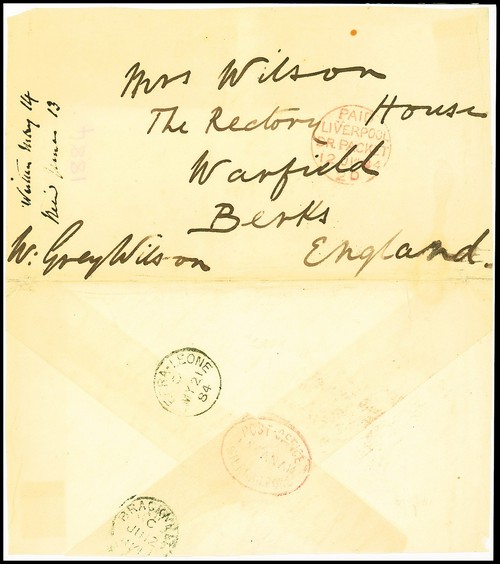 Mrs Wilson
The Rectory House
Warfield
Berks
England.
W: Grey Wilson
Written May 14
June 13
1884
PAID
LIVERPOOL
BR. PACKET
12 JU 84
SIERRA-LEONE
C
MY 21
84
POST-OFFICE
BRACKNELL
C
JU 12